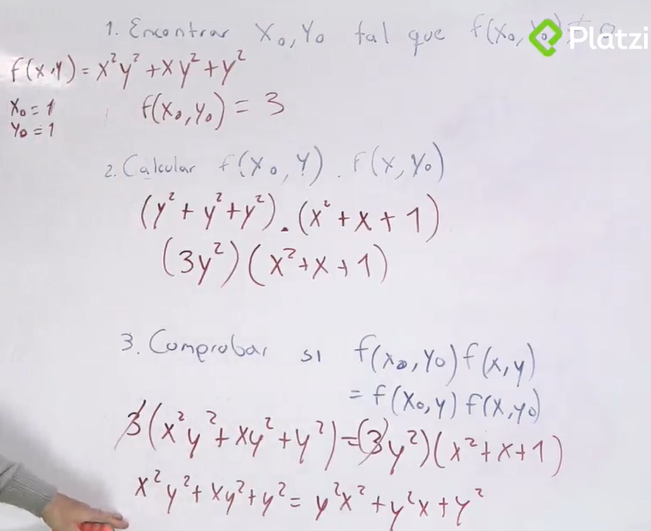 1. Encontrar X₀, Y₀ tal que f(X₀, Y₀) ≠ 0
Platzi
f(x,y) = x²y² + xy² + y²
X₀ = 1
Y₀ = 1
f(X₀, Y₀) = 3
2. Calcular f(X₀, Y) . F(X, Y₀)
(y² + y² + y²) . (x² + x + 1)
(3y²)(x² + x + 1)
3. Comprobar si f(X₀, Y₀) f(x, y)
= f(X₀, y) f(X, y₀)
3(x²y² + xy² + y²) = (3y²)(x² + x + 1)
x²y² + xy² + y² = y²x² + y²x + y²